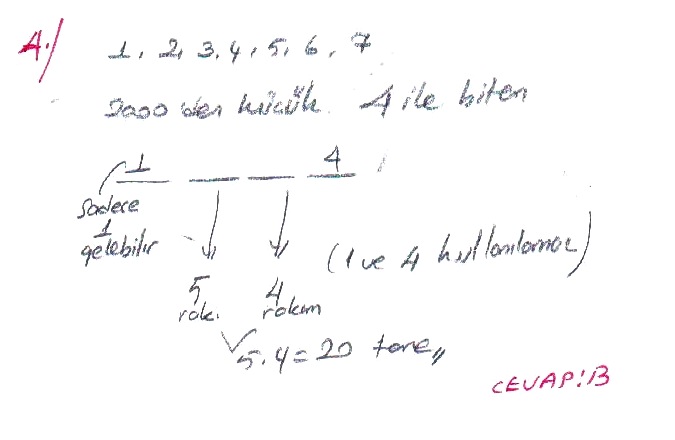 4./ 1, 2, 3, 4, 5, 6, 7
2000 den küçük 4 ile biten
1 __ __ 4
Sadece
1
gelebilir
(1 ve 4 kullanılamaz)
5 4
rak. rakam
5.4=20 tane,,
CEVAP:B